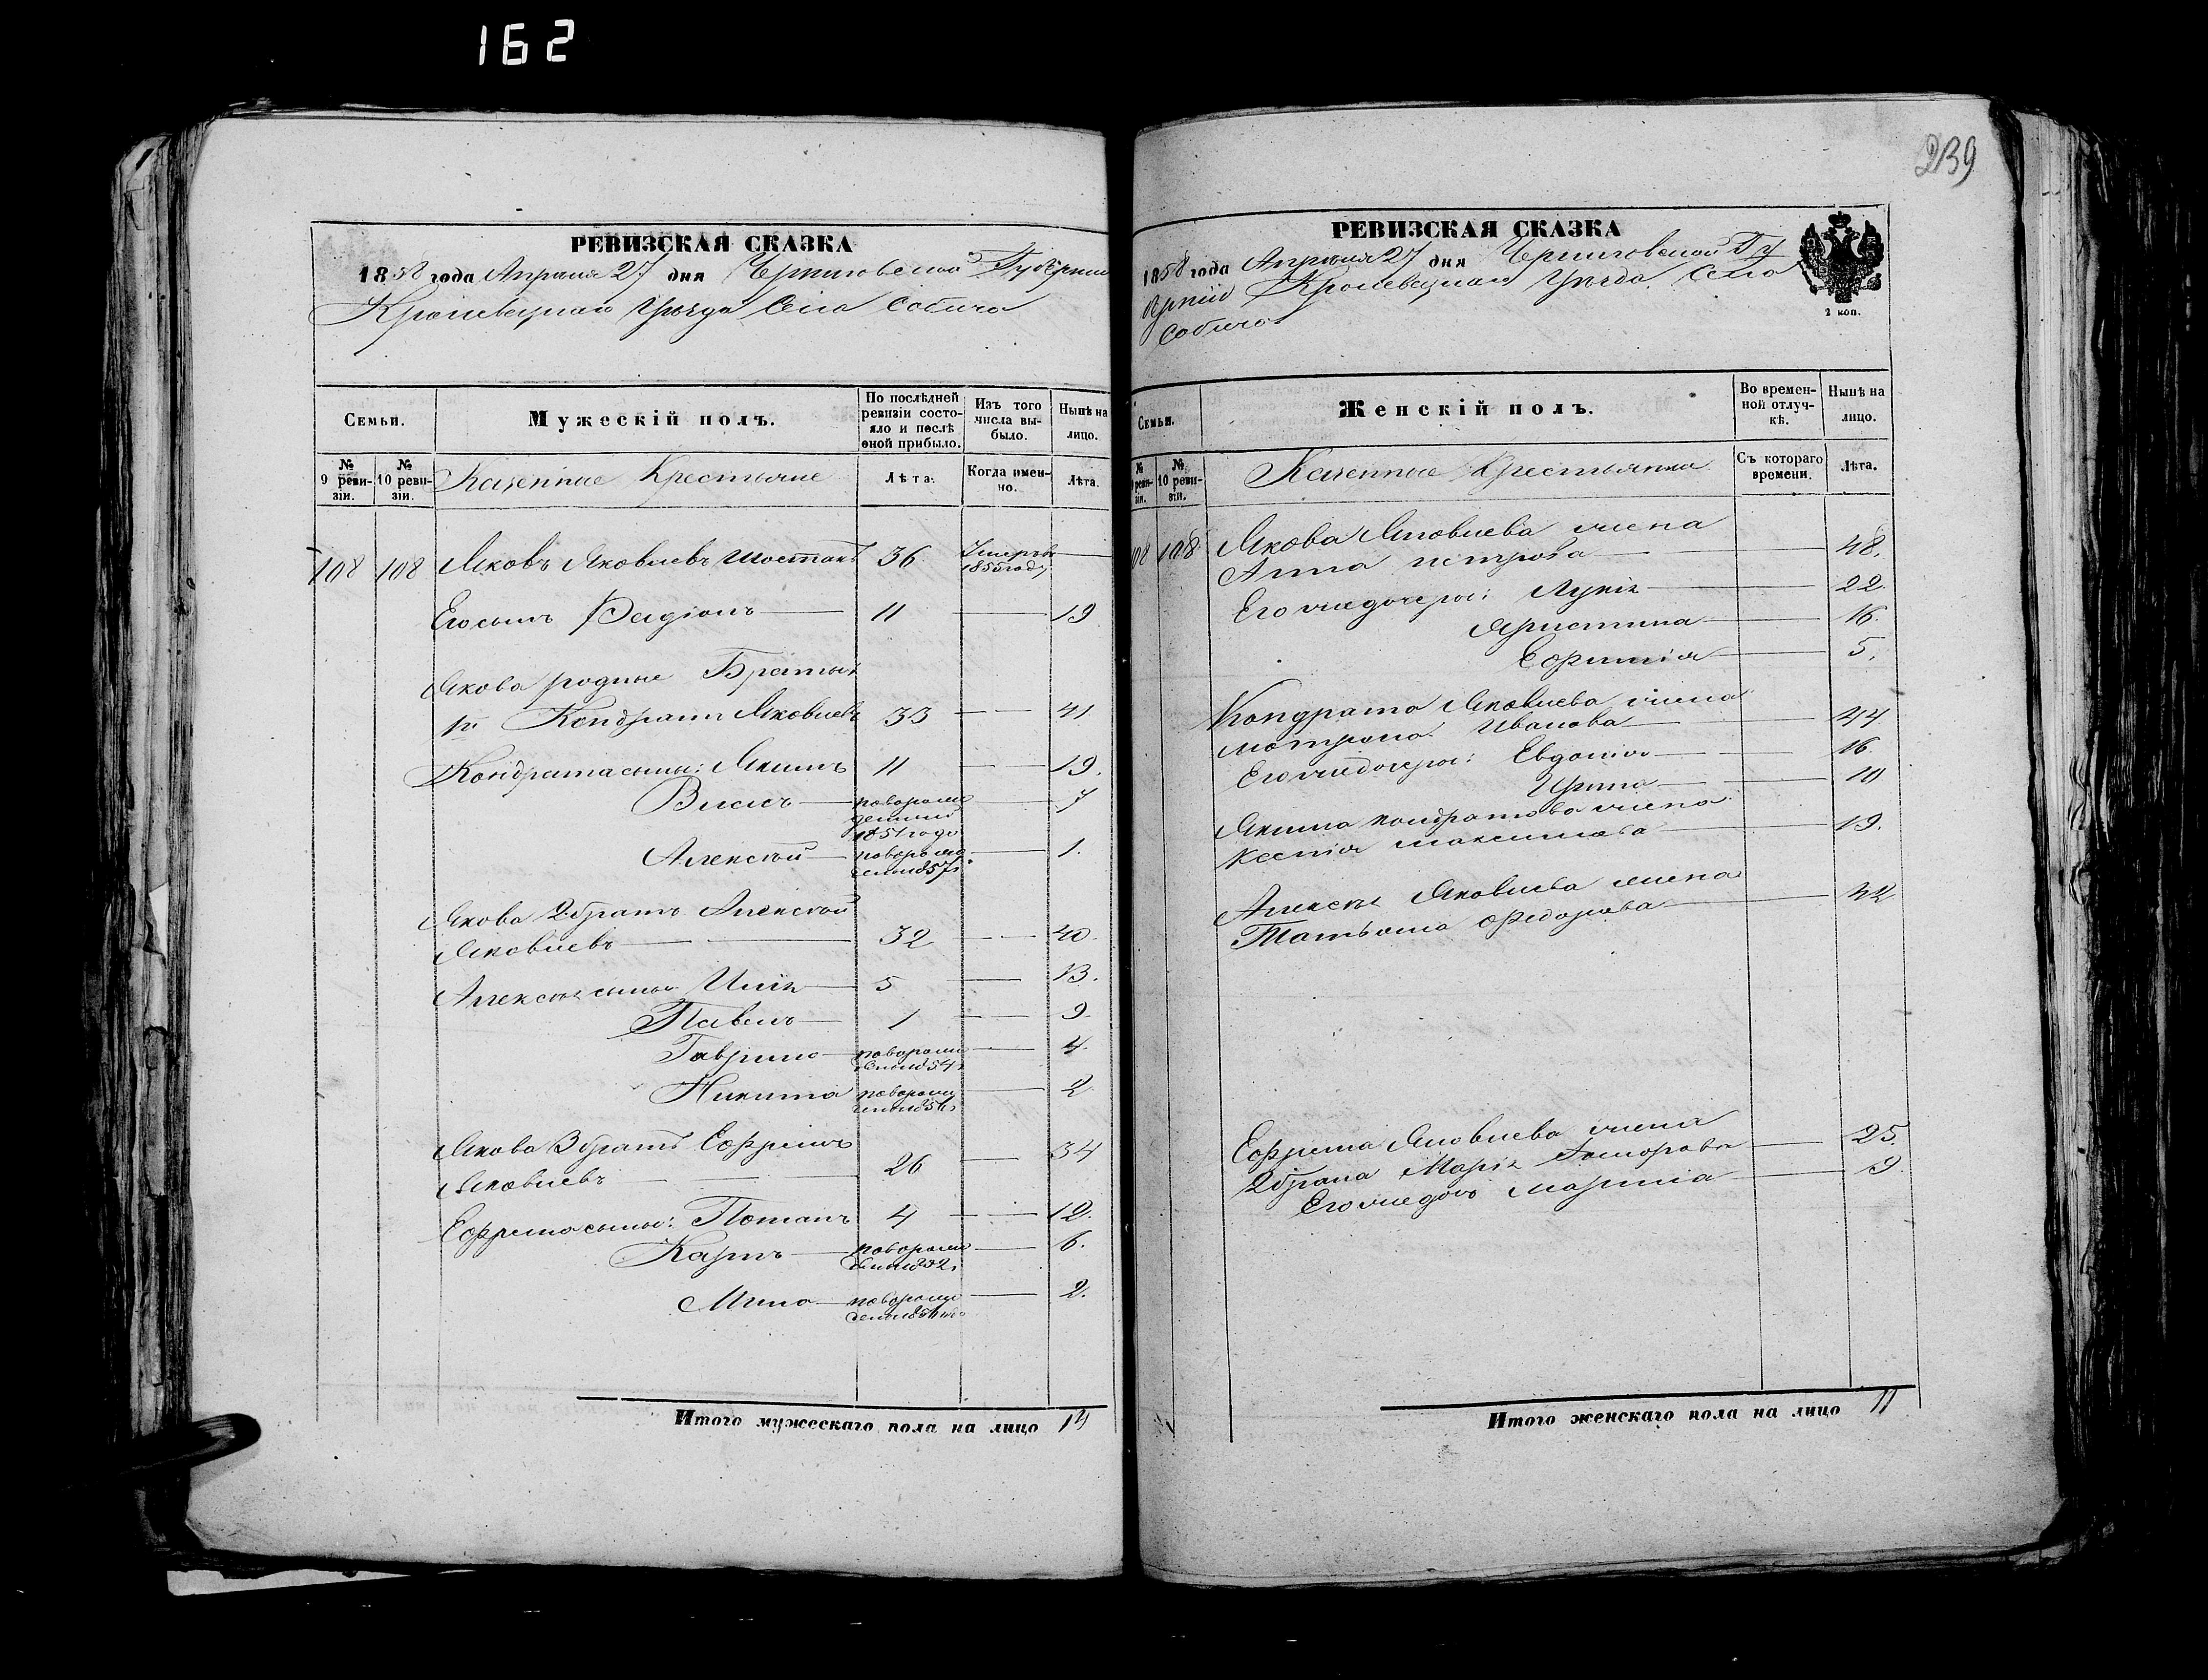 162
РЕВИЗСКАЯ СКАЗКА
1858 года Апреля 27 дня Черниговской Губернии
Кролевецкаго Уезда Села Собича
Семьи.
Мужескій полъ.
По послѣдней ревизіи состояло и послѣ оной прибыло.
Изъ того числа выбыло.
Нынѣ на лицо.
№ 9 ревизіи.
№ 10 ревизіи.
Казенные Крестьяне
Лѣта.
Когда именно.
Лѣта.
108 108 Яковъ Яковлевъ Шостакъ 36 Умеръ въ 1855 году
Его сынъ Радіонъ 11 19
Якова родные Братья
1й Кондратъ Яковлевъ 33 41
Кондрата сыны: Якимъ 11 19.
Власъ новорожденный 1851 года 7
Алексей новорожденный 857г. 1.
Якова 2 братъ Алексей
Яковлевъ 32 40.
Алексея сыны Илія 5 13.
Павелъ 1 9.
Гаврило новорожденный 854г 4.
Никита новорожденный 856г 2
Якова 3 братъ Ефремъ
Яковлевъ 26 34
Ефрема сыны: Потапъ 4 12.
Карпъ новорожденный 852г 6.
Мина новорожденный 856 2.
Итого мужескаго пола на лицо 14
239
РЕВИЗСКАЯ СКАЗКА
1858 года Апреля 27 дня Черниговской Гу
берніи Кролевецкаго Уезда Села
Собича
2 коп.
Семьи.
Женскій полъ.
Во временной отлучкѣ.
Нынѣ на лицо.
№ 9 ревизіи.
№ 10 ревизіи.
Казенные Крестьянки
Съ котораго времени.
Лѣта.
108 108 Якова Яковлева жена
Анна петрова 48.
Его же дочери: Лукія 22.
Христина 16.
Ефимія 5.
Кондрата Яковлева жена
мотрона Иванова 44
Его же дочери: Евдокія 16
Ирина 10
Якима кондратова жена
Ксенія максимова 19.
Алексея Яковлева жена
Татьяна федорова 42
Ефрема Яковлева жена
2 брака Марія 25.
Его же дочь марина 9
Итого женскаго пола на лицо 11